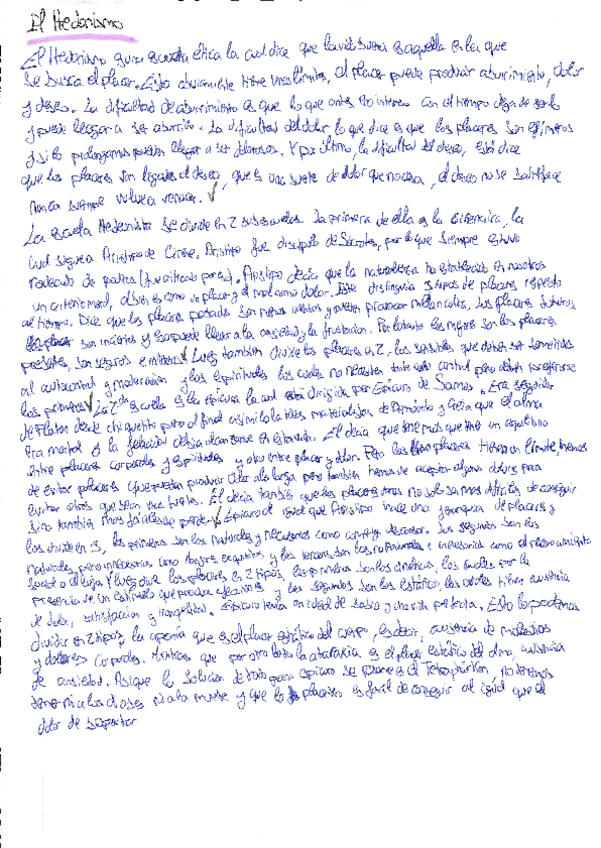 El Hedonismo
El Hedonismo es una escuela ética la cual dice que la vida buena es aquella en la que
se busca el placer. Esto obviamente tiene unos límites, el placer puede producir aburrimiento, dolor
y deseo. La dificultad de aburrimiento es que lo que antes no interesa con el tiempo deja de serlo
y puede llegar a ser aburrido. La dificultad del dolor lo que dice es que los placeres son efímeros
y si lo prolongamos pueden llegar a ser dolorosos. Y por último, la dificultad del deseo, está dice
que los placeres son ligados al deseo, que es una suerte de dolor que no cesa, el deso no se satisface
nunca siempre vuelve a renacer.
La escuela Hedonista se divide en 2 subescuelas. La primera de ella es la cirenaica, la
cual sigue a Aristipo de Cirene. Aristipo fue discípulo de Sócrates, por lo que siempre estuvo
rodeado de. Aristipo decía que la naturaleza ha establecido en nosotros
un criterio moral, el bien es como un placer y el mal como dolor. Este distinguía 3 tipos de placeres respecto
al tiempo. Dice que los placeres pasados son menos intensos y pueden provocar melancolía. Los placeres futuros
son inciertos y eso puede llevar a la ansiedad y la frustración. Por lo tanto los mejores son los placeres
presentes, son seguros e intensos. Luego también divide los placeres en 2, los sensibles que deben ser sometidos
al autocontrol y moderación y los espirituales los cuales no necesitan tanto control pero deben preferirse
los primeros. La 2ª escuela es la epicúrea la cual está dirigida por Epicuro de Samos. Era seguidor
de Platon desde chiquitito pero al final asimiló la idea materialista de Demócrito y creía que el alma
era mortal y la felicidad debía alcanzarse en esta vida. El decía que tenemos que tener un equilibrio
entre placeres corporales y espirituales y otro entre placer y dolor. Pero los placeres tienen un límite, hemos
de evitar placeres que puedan producir dolor a lo larga pero también hemos de aceptar algunos dolores para
evitar otros que sean más fuertes. El decía también que los placeres no solo son más difíciles de conseguir
sino también más fáciles de perder. Epicuro al igual que Aristipo hace una jerarquía de placeres y
los divide en 3, los primeros son los naturales y necesarios como comer y descansar. Los segundos son los
naturales pero innecesarios como manjares exquisitos y los terceros son los no naturales e innecesarios como el reconocimiento
social o el lujo. Y luego divide los placeres en 2 tipos, los primeros son los cinéticos, los cuales por la
presencia de un estímulo que produce y los segundos son los estáticos, los cuales tienen ausencia
de dolor, satisfacción y tranquilidad. Epicuro tenía un ideal de sabio y una vida perfecta. Esto lo podemos
dividir en 2 tipos, la aponia que es el placer estático del cuerpo, es decir, ausencia de molestias
y dolores corporales. Mientras que por otro lado la ataraxia es el placer estático del alma, ausencia
de ansiedad. Asique la solución de todo para epicuro se resume en el Tetraphármakon, no tenemos
temer ni a los dioses ni a la muerte y que los placeres es fácil de conseguir al igual que el
dolor de soportar